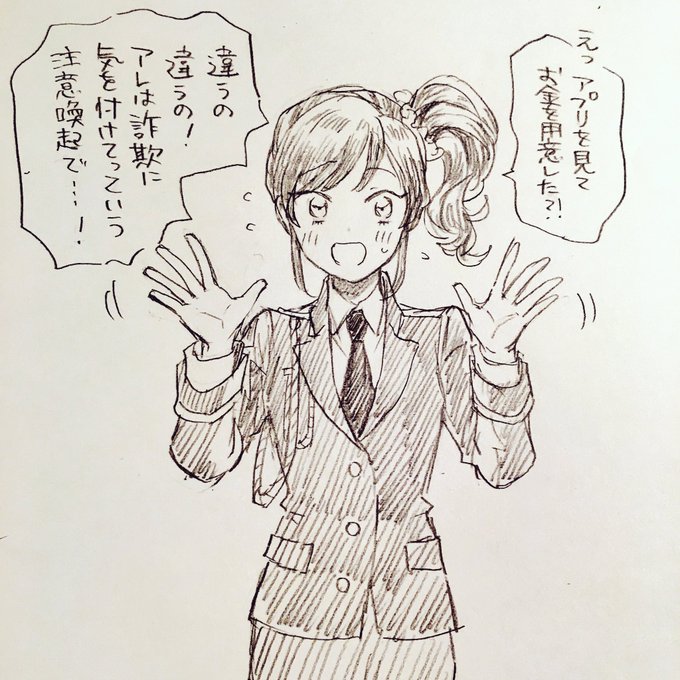 えっ アプリを見て
お金を用意した?!
違うの
違うの!
アレは詐欺に
気を付けてっていう
注意喚起で…!